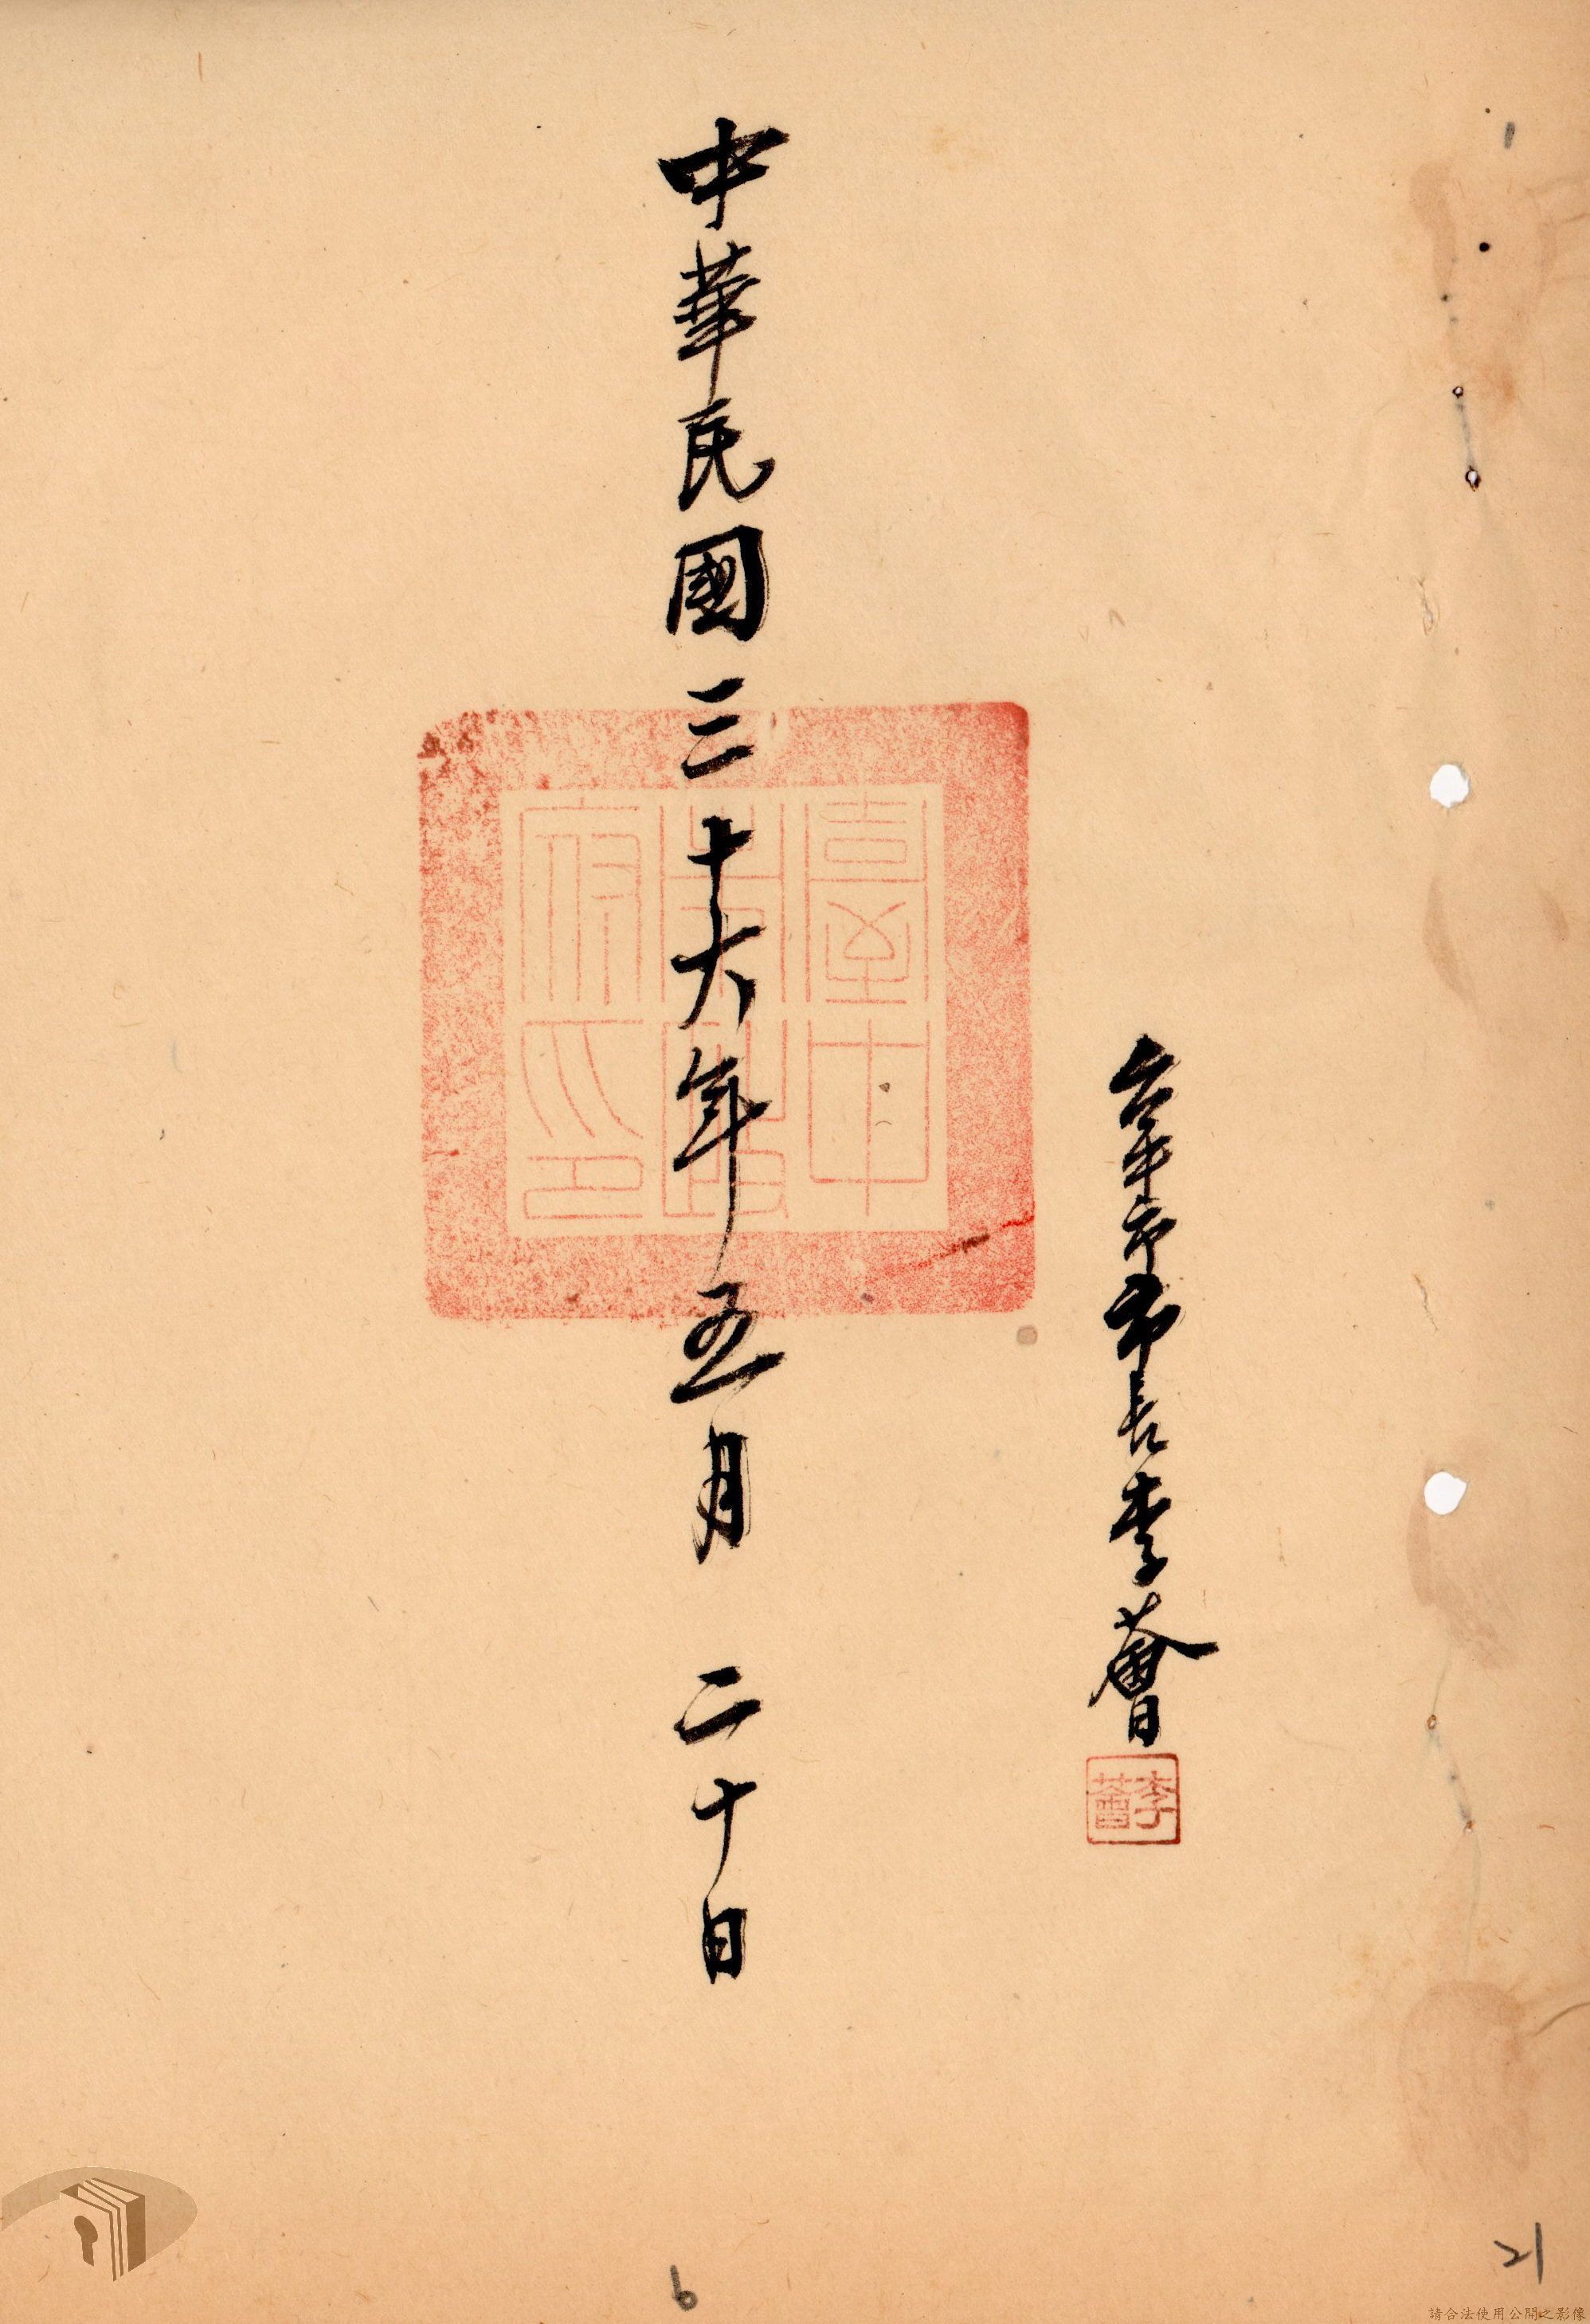 台中市市長李薈
李薈
中華民國三十六年五月 二十日
臺中
市政
府印
6
21
請合法使用公開之影像